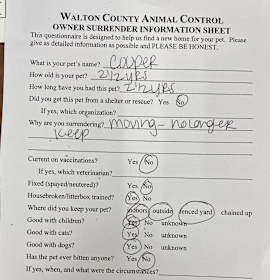 WALTON COUNTY ANIMAL CONTROL
OWNER SURRENDER INFORMATION SHEET
This questionnaire is designed to help us find a new home for your pet. Please
give as detailed information as possible and PLEASE BE HONEST.
What is your pet's name? Cooper
How old is your pet? 2 1/2 yrs
How long have you had this pet? 2 1/2 yrs
Did you get this pet from a shelter or rescue? Yes No
If yes, which organization?
Why are you surrendering? moving - no longer
keep
Current on vaccinations? Yes No
If yes, which veterinarian?
Fixed (spayed/neutered)? Yes No
Housebroken/litterbox trained? Yes No
Where did you keep your pet? indoors outside fenced yard chained up
Good with children? Yes No unknown
Good with cats? Yes No unknown
Good with dogs? Yes No unknown
Has the pet ever bitten anyone? Yes No
If yes, when, and what were the circumstances?